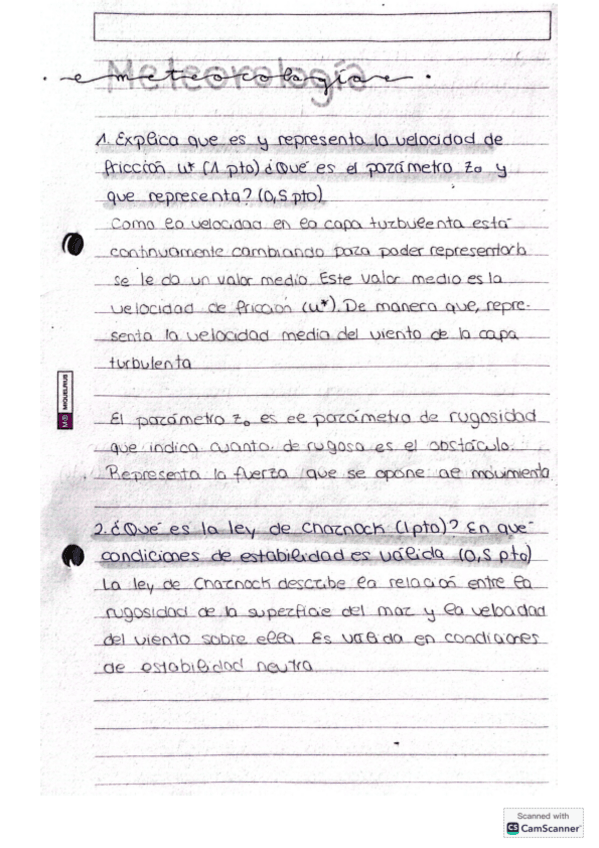 Meteorología
· meteorología ·
1. Explica que es y representa la velocidad de
fricción u* (1 pto) ¿Qué es el parámetro z₀ y
que representa? (0,5 pto)
Como la velocidad en la capa turbulenta está
continuamente cambiando para poder representarla
se le da un valor medio. Este valor medio es la
velocidad de fricción (u*). De manera que, repre-
senta la velocidad media del viento de la capa
turbulenta
MIQUELRIUS
El parámetro z₀ es el parámetro de rugosidad
que indica cuanto de rugoso es el obstáculo.
Representa la fuerza que se opone al movimiento
2. ¿Qué es la ley de Charnock (1 pto)? En qué
condiciones de estabilidad es válida (0,5 pto)
La ley de Charnock describe la relación entre la
rugosidad de la superficie del mar y la velocidad
del viento sobre ella. Es válida en condiciones
de estabilidad neutra
Scanned with
CS CamScanner